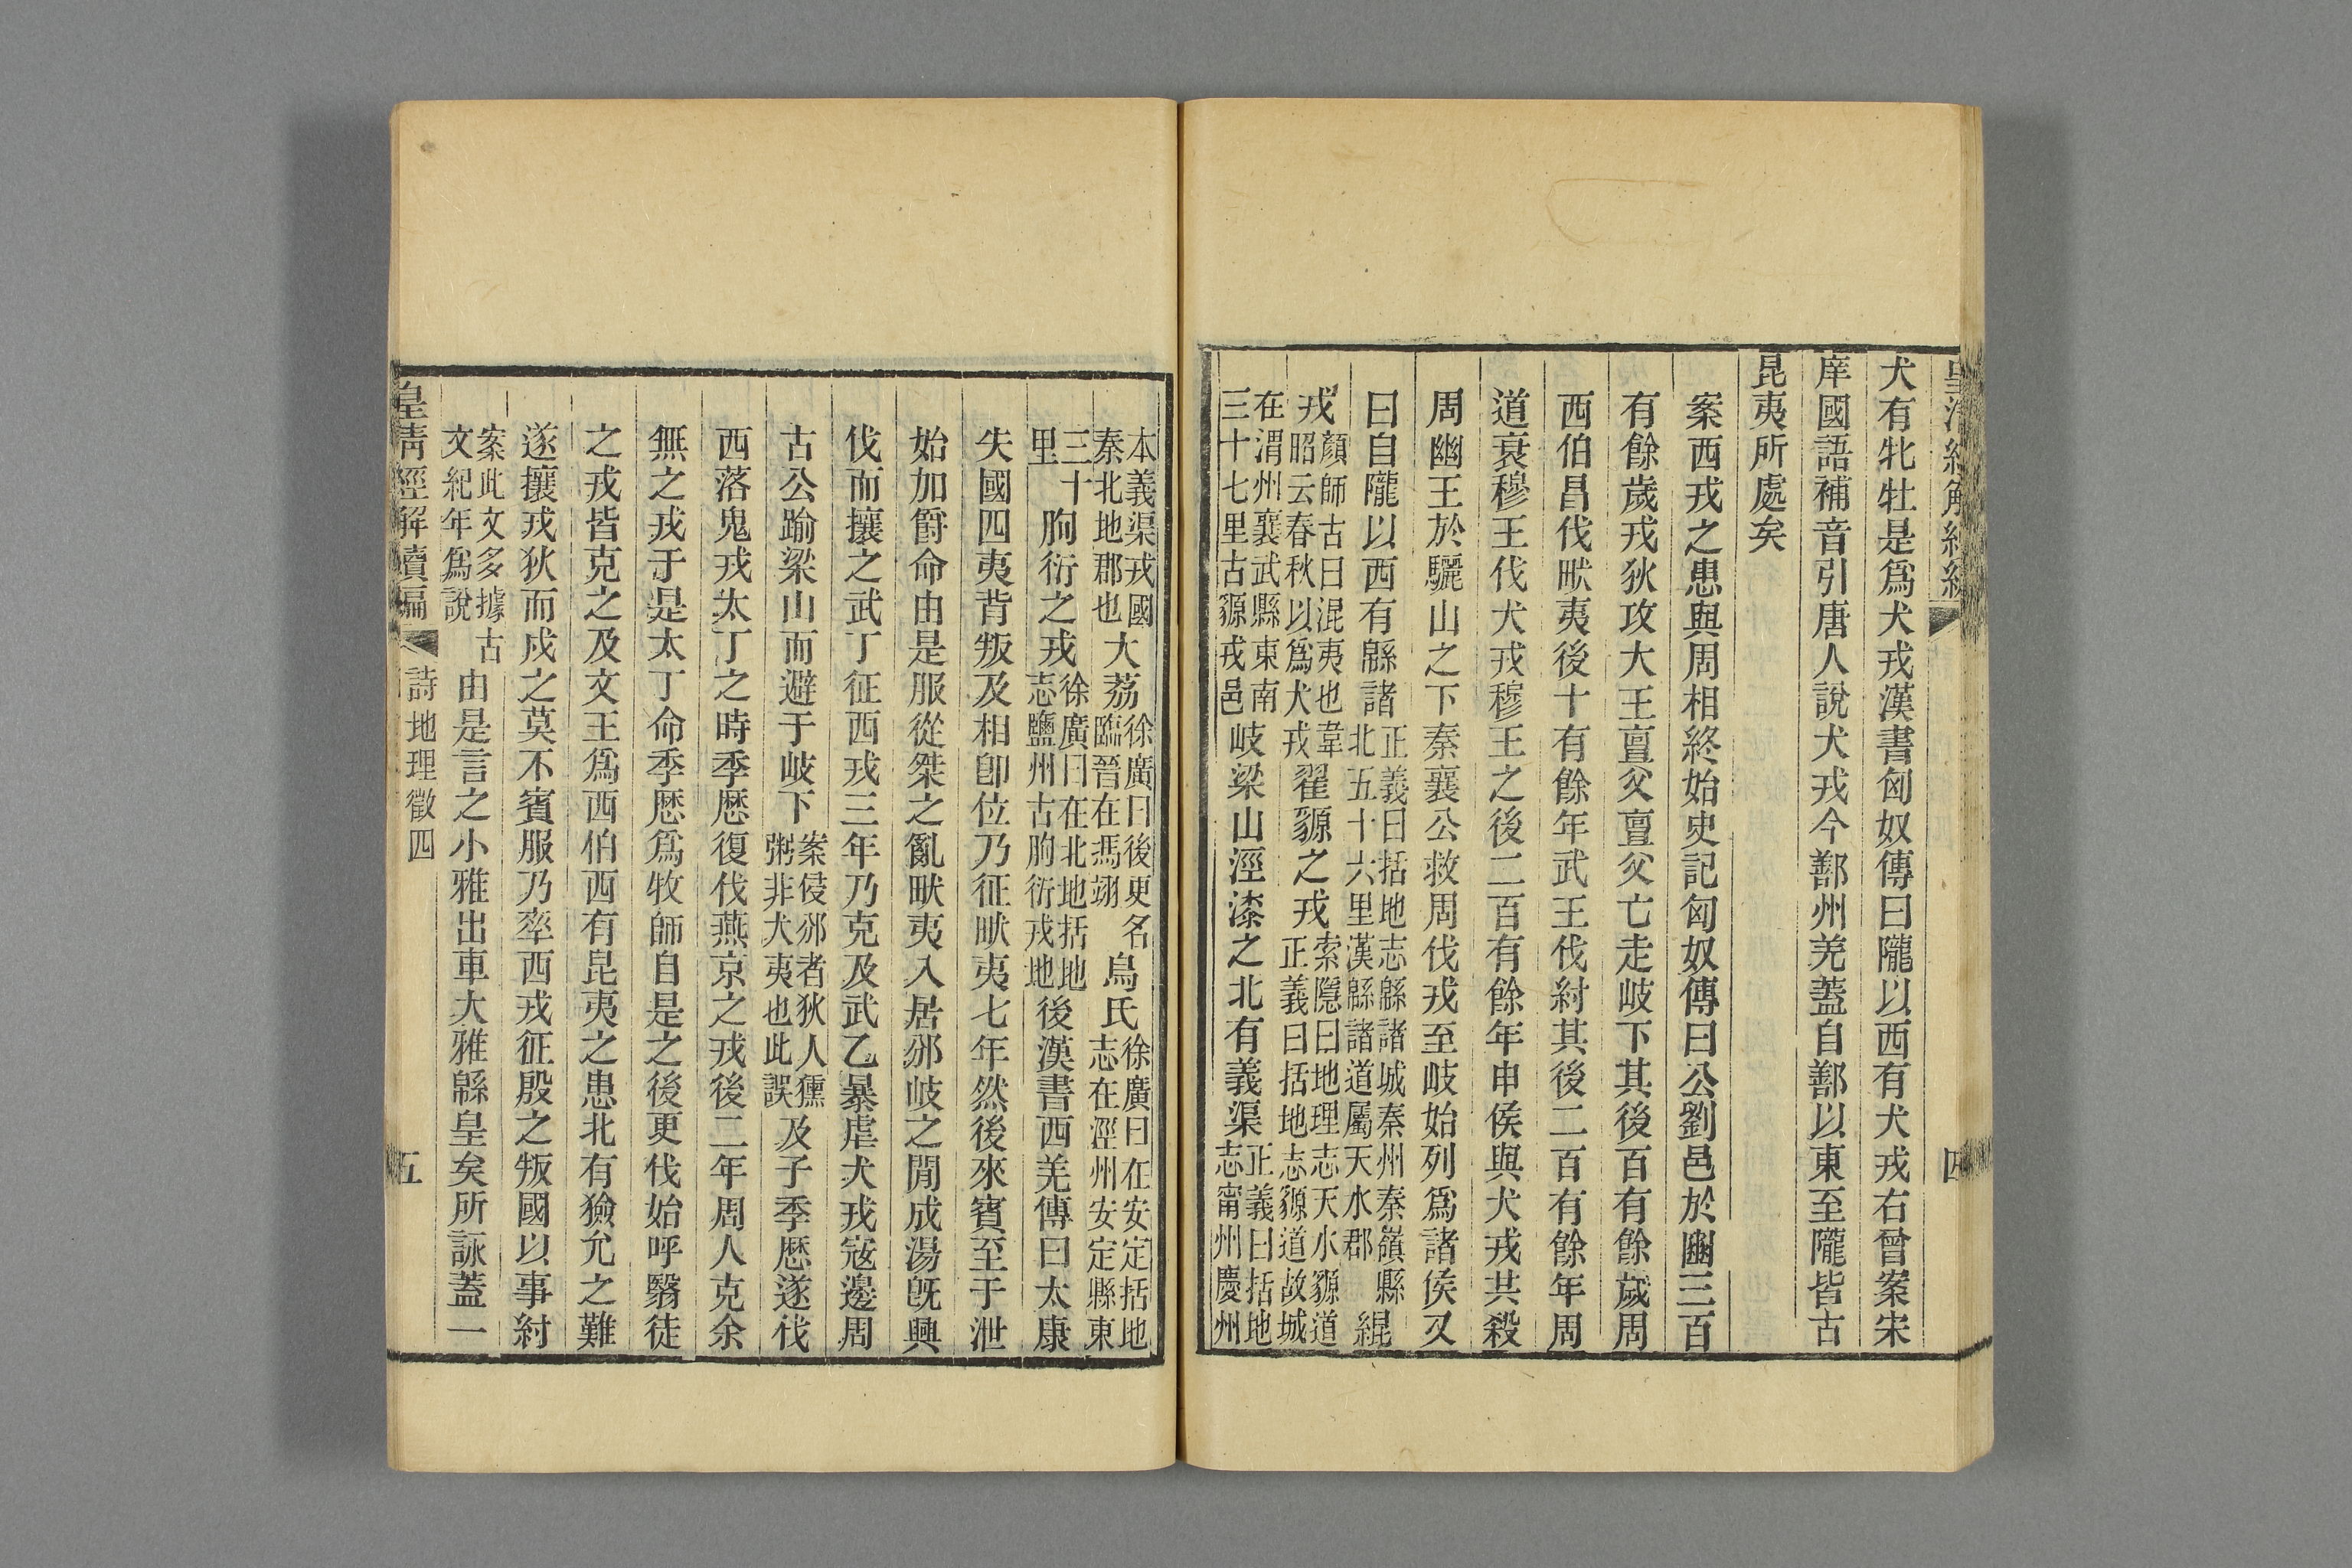 犬有牝牡是爲犬戎漢書匈奴傳曰隴以西有犬戎右曾案宋
庠國語補音引唐人說犬戎今鄯州羌蓋自鄯以東至隴皆古
昆夷所處矣
案西戎之患與周相終始史記匈奴傳曰公劉邑於豳三百
有餘歲戎狄攻大王亶父亶父亡走岐下其後百有餘歲周
西伯昌伐畎夷後十有餘年武王伐紂其後二百有餘年周
道衰穆王伐犬戎穆王之後二百有餘年申侯與犬戎共殺
周幽王於驪山之下秦襄公救周伐戎至岐始列爲諸侯又
曰自隴以西有緜諸正義曰括地志緜諸城秦州秦嶺縣北五十六里漢緜諸道屬天水郡緄
戎顏師古曰混夷也韋昭云春秋以爲犬戎翟豲之戎索隱曰地理志天水豲道正義曰括地志豲道故城
在渭州襄武縣東南三十七里古豲戎邑岐梁山涇漆之北有義渠正義曰括地志甯州慶州
本義渠戎國秦北地郡也大荔徐廣曰後更名臨晉在馮翊烏氏徐廣曰在安定括地志在涇州安定縣東
三十里朐衍之戎徐廣曰在北地括地志鹽州古朐衍戎地後漢書西羌傳曰太康
失國四夷背叛及相卽位乃征畎夷七年然後來賓至于泄
始加爵命由是服從桀之亂畎夷入居邠岐之閒成湯旣興
伐而攘之武丁征西戎三年乃克及武乙暴虐犬戎寇邊周
古公踰梁山而避于岐下案侵邠者狄人獯粥非犬夷也此誤及子季歷遂伐
西落鬼戎太丁之時季歷復伐燕京之戎後二年周人克余
無之戎于是太丁命季歷爲牧師自是之後更伐始呼翳徒
之戎皆克之及文王爲西伯西有昆夷之患北有獫允之難
遂攘戎狄而戍之莫不賓服乃率西戎征殷之叛國以事紂
案此文多據古文紀年爲說由是言之小雅出車大雅緜皇矣所詠蓋一
皇清經解續編
詩地理徵四
五